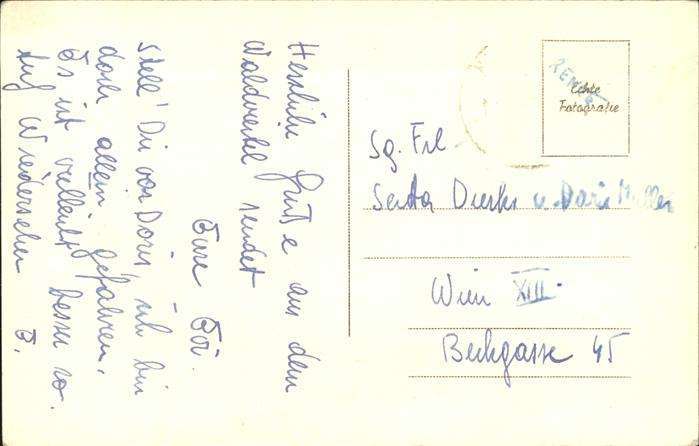 Herzliche Grüße aus dem
Waldviertel sendet
Eure Evi.
Stell' Dir vor Doris, ich bin
doch allein gefahren.
Es ist vielleicht besser so.
Auf Wiedersehen E.
Echte
Fotografie
Sg. Frl
Senta Dierks u. Doris Müller
Wien XIII.
Beckgasse 45